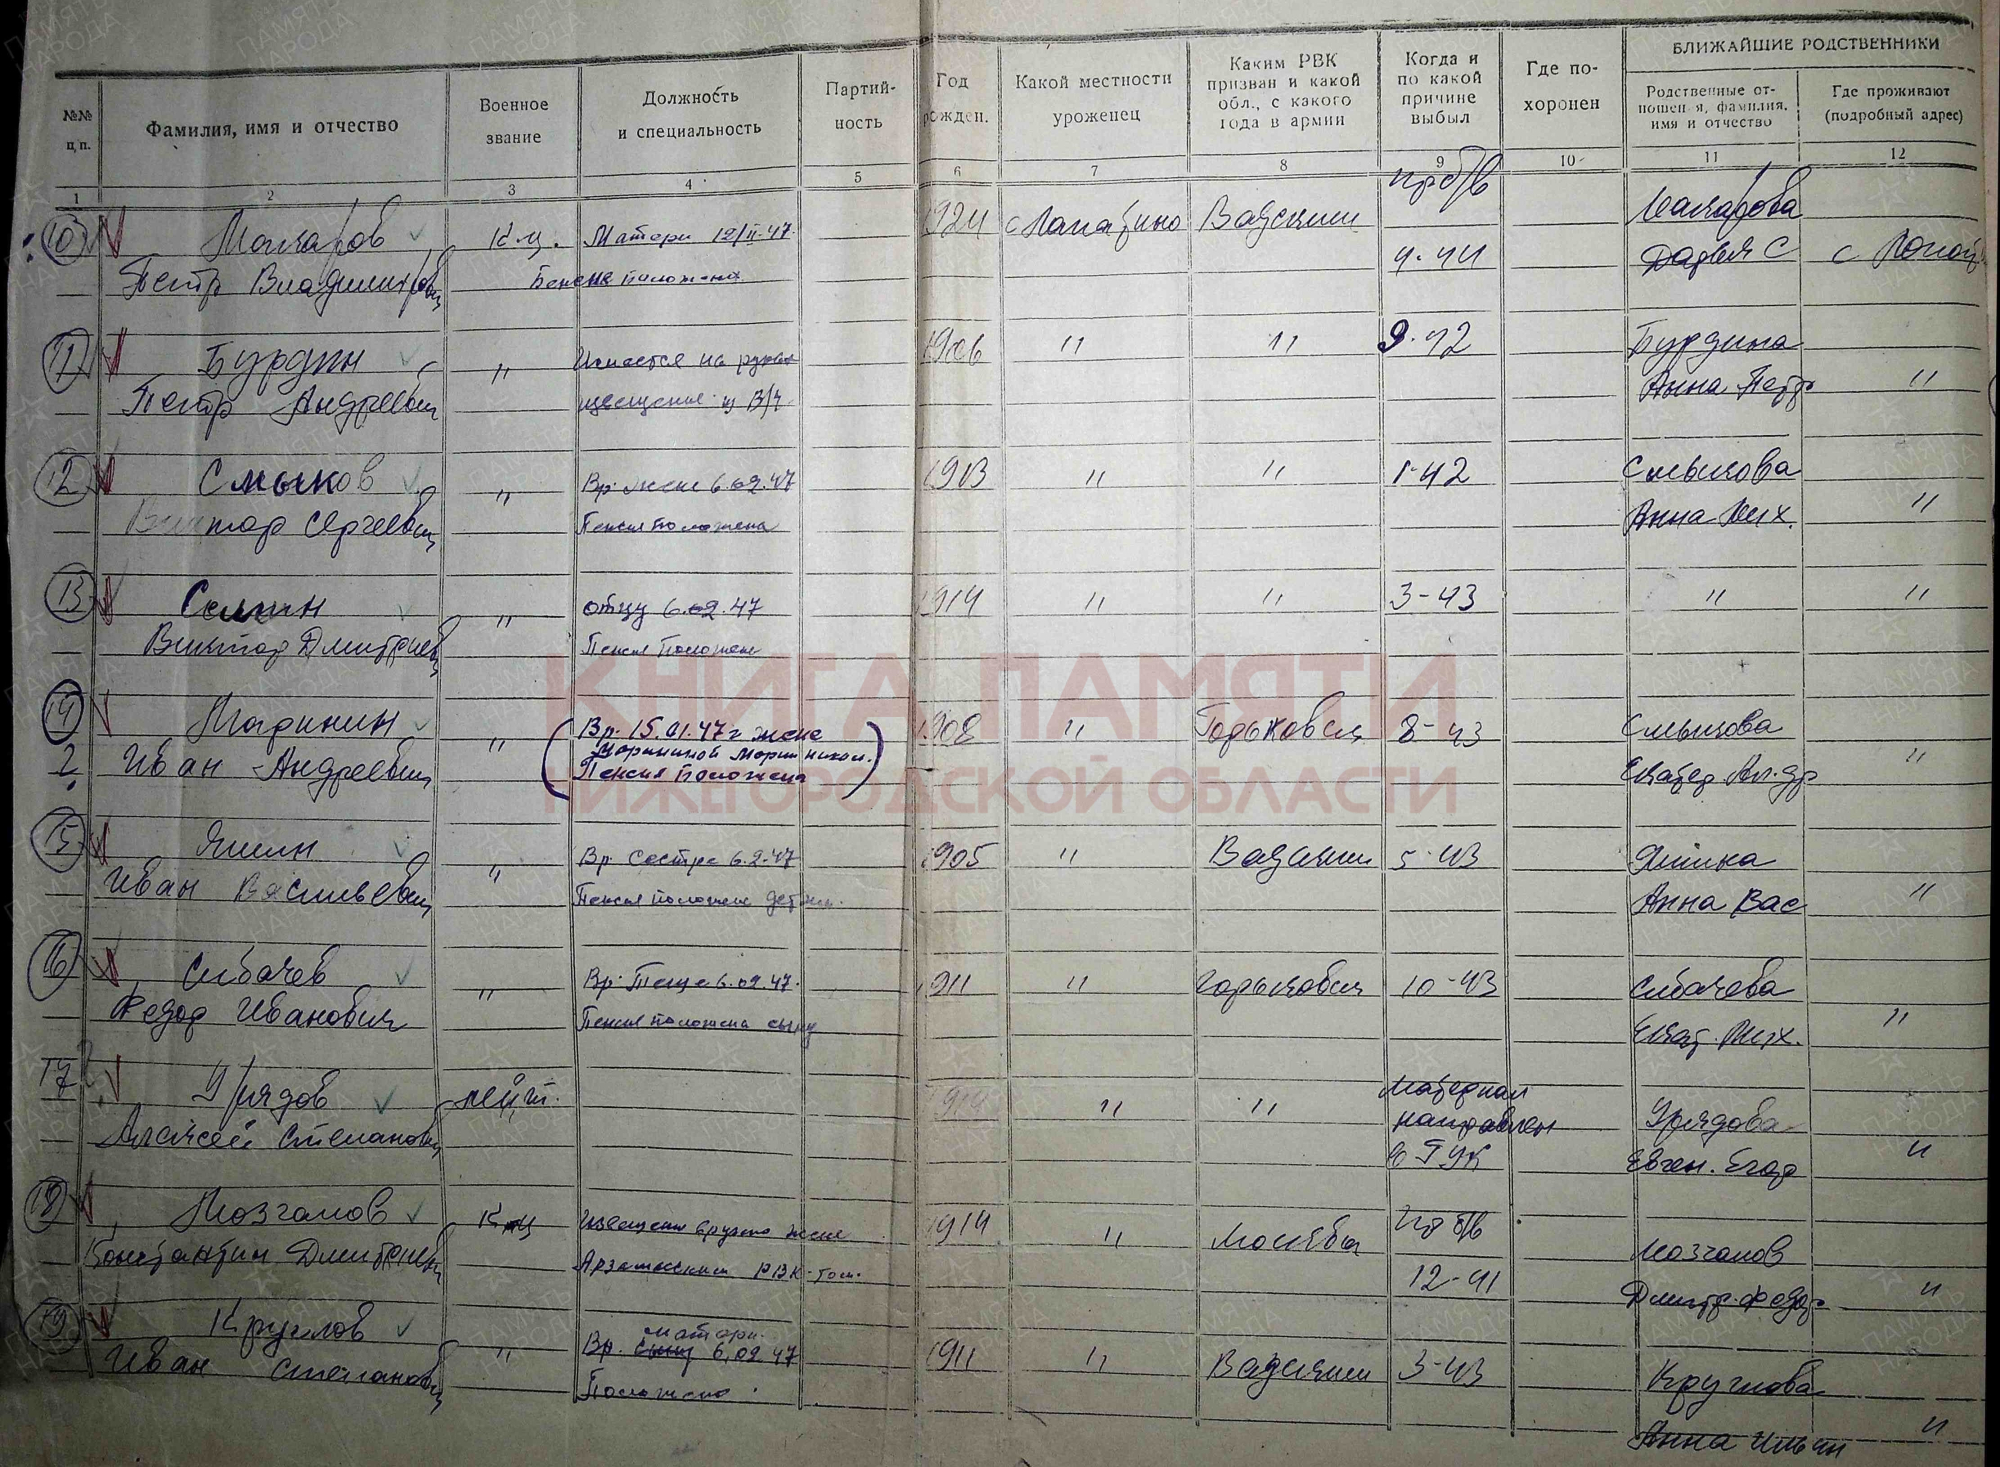 БЛИЖАЙШИЕ РОДСТВЕННИКИ
№№ п.п.
Фамилия, имя и отчество
Военное звание
Должность и специальность
Партий- ность
Год рожден.
Какой местности уроженец
Каким РВК призван и какой обл., с какого года в армии
Когда и по какой причине выбыл
Где по- хоронен
Родственные от- ношен я, фамилия, имя и отчество
Где проживают (подробный адрес)
1 2 3 4 5 6 7 8 9 10 11 12
пр б/в
10 Макаров К-ц. Матери 12/II-47. 1924 Вадским Макарова
Петр Владимирович положена 4-44 Дарья С с
11 Бурдин " Имеется на руках 1906 " " 9-42 Бурдина
Петр Андреевич в/ч. Анна Петр "
12 Смыков " Вр. жене 6.02.47 1913 " " 1-42 Смыкова
Виктор Сергеевич Пенсия положена Анна Мих. "
13 " отцу 6.02.47 1914 " " 3-43 " "
Виктор Дмитриев Пенсия положена
14 Маринин " Вр. 15.01.47 г жене 1908 " Горьковск 8-43 Смыкова
2 Иван Андреевич Марининой Марии Никол. "
Пенсия положена
КНИГА ПАМЯТИ
НИЖЕГОРОДСКОЙ ОБЛАСТИ
15 Яшин " Вр. Сестре 6.2.47 1905 " Вадским 5-43 Яшина
Иван Васильевич Пенсия положена детям. Анна Вас "
16 Сибачев " Вр. Теще 6.02.47. 1911 " Горьковск 10-43 Сибачева
Федор Иванович Пенсия положена сыну Екат. Мих. "
17 Урядов лейт. 1914 " " Материал направлен Урядова
Алексей Степанович в ГУК Евген. Егор "
18 Мозгалов К-ц вручено жене 1914 " Москвы пр б/в Мозгалов
Константин Дмитриев Арзамасским РВК- 12-41 Дмитр. Федор "
19 Круглов " Вр. матери. 6.02.47 1911 " Вадским 3-43 Круглова
Иван Степанович Положена. Анна Ильин "